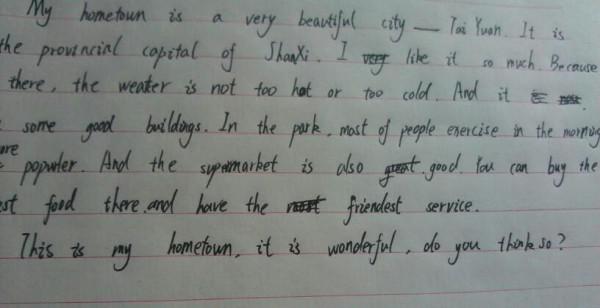 My hometown is a very beautiful city — Tai Yuan. It is
the provincial capital of ShanXi. I like it so much. Because
there, the weater is not too hot or too cold. And it
some good buildings. In the park, most of people exercise in the morning
are
populer. And the supermarket is also good. You can buy the
est food there.and have the friendest service.
This is my hometown, it is wonderful, do you think so?